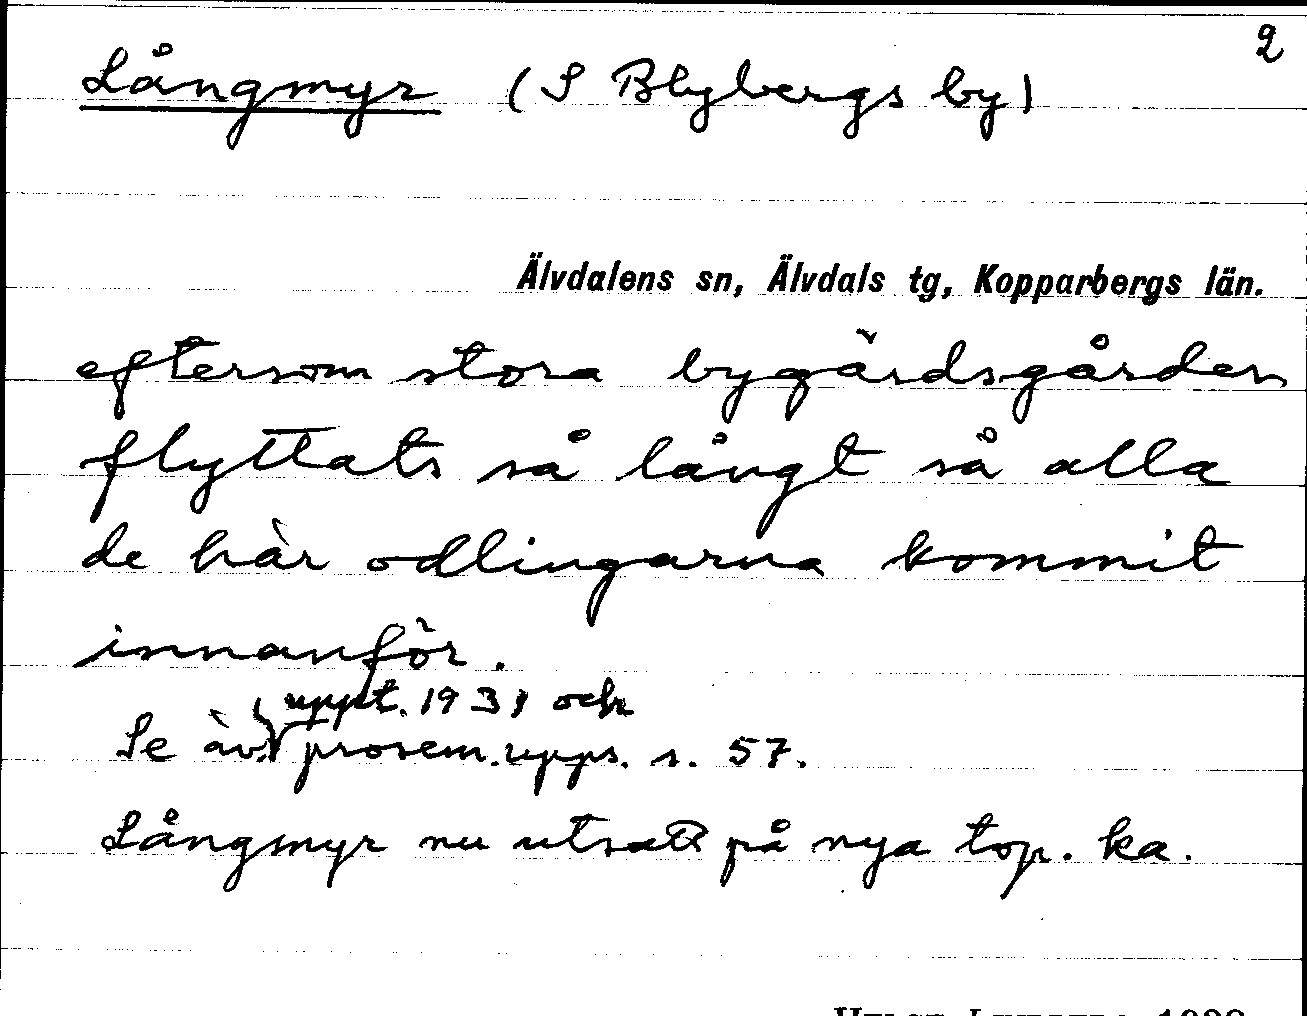 2
Långmyr (S Blybergs by)
Älvdalens sn, Älvdals tg, Kopparbergs län.
eftersom stora bygärdsgården
flyttats så långt så alla
de här odlingarna kommit
innanför.
uppt. 1931 och
Se äv. prosem.upps. s. 57.
Långmyr nu utsatt på nya top. ka.